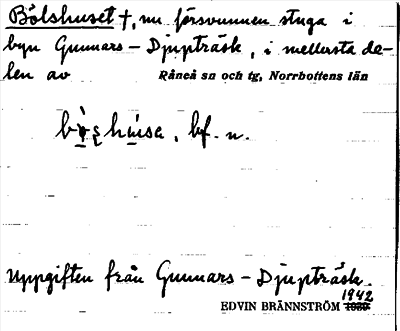 Bölshuset †, nu försvunnen stuga i
byn Gunnars-Djupträsk, i mellersta de-
len av Råneå sn och tg, Norrbottens län
bf. n.
Uppgiften från Gunnars-Djupträsk.
1942
EDVIN BRÄNNSTRÖM 1939